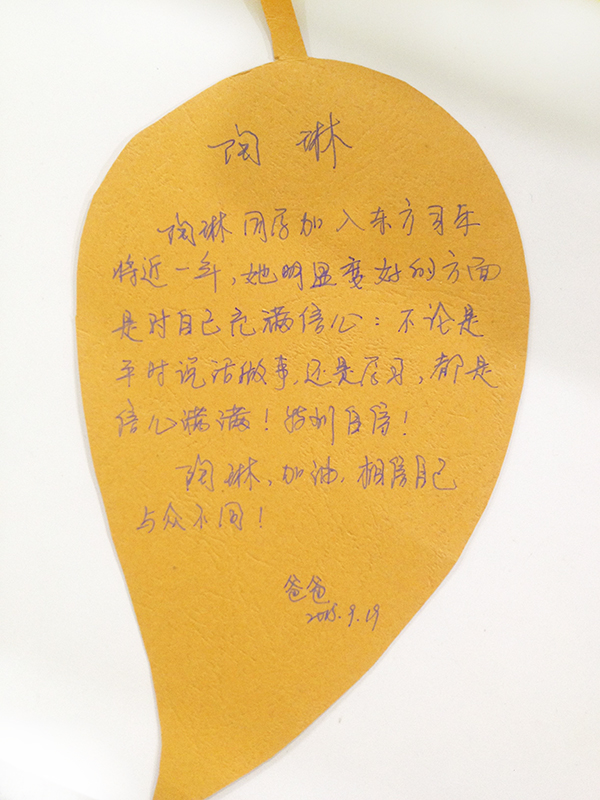 陶 琳
陶琳同学加入东方习乐
将近一年,她明显变好的方面
是对自己充满信心:不论是
平时说话做事,还是学习,都是
信心满满!特别自信!
陶琳,加油,相信自己
与众不同!
爸爸
2015.9.19